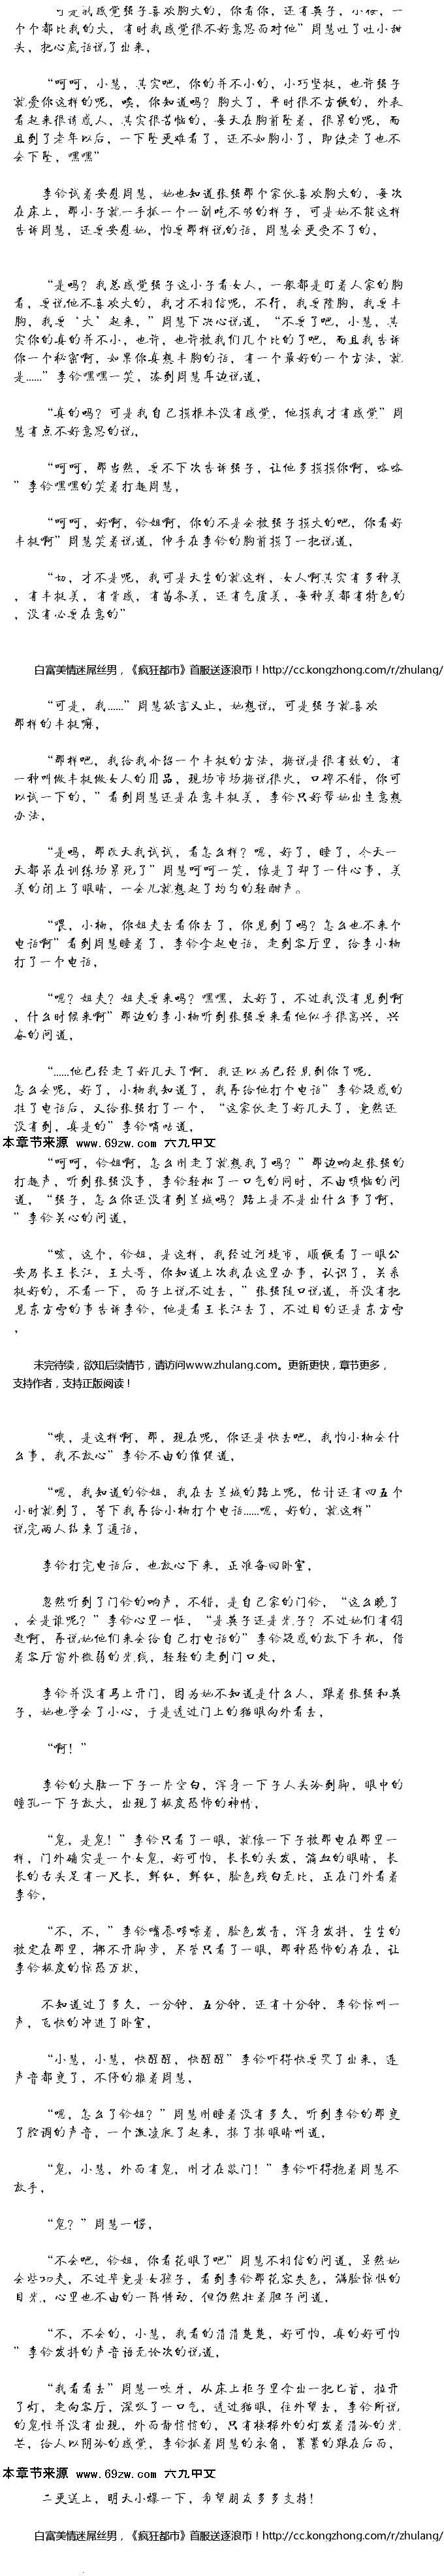 可是我感觉强子喜欢胸大的，你看你，还有英子，小楼，一
个个都比我的大，有时我感觉很不好意思面对他”周慧吐了吐小甜
头，把心底话说了出来，
“呵呵，小慧，其实吧，你的并不小的，小巧坚挺，也许强子
就爱你这样的呢，唉，你知道吗？胸大了，平时很不方便的，外表
看起来很诱惑人，其实很苦恼的，每天在胸前坠着，很累的呢，而
且到了老年以后，一下坠更难看了，还不如胸小了，即使老了也不
会下坠，嘿嘿”
李铃试着安慰周慧，她也知道张强那个家伙喜欢胸大的，每次
在床上，那小子就一手抓一个一副吃不够的样子，可是她不能这样
告诉周慧，还要安慰她，怕要那样说的话，周慧会更受不了的，
“是吗？我总感觉强子这小子看女人，一般都是盯着人家的胸
看，要说他不喜欢大的，我才不相信呢，不行，我要隆胸，我要丰
胸，我要‘大’起来，”周慧下决心说道，“不要了吧，小慧，其
实你的真的并不小，也许，也许被我们几个比的了吧，而且我告诉
你一个秘密啊，如果你真想丰胸的话，有一个最好的一个方法，就
是……”李铃嘿嘿一笑，凑到周慧耳边说道，
“真的吗？可是我自己摸根本没有感觉，他摸我才有感觉”周
慧有点不好意思的说，
“呵呵，那当然，要不下次告诉强子，让他多摸摸你啊，咯咯
”李铃嘿嘿的笑着打趣周慧，
“呵呵，好啊，铃姐啊，你的不是会被强子摸大的吧，你看好
丰挺啊”周慧笑着说道，伸手在李铃的胸前摸了一把说道，
“切，才不是呢，我可是天生的就这样，女人啊其实有多种美
，有丰挺美，有骨感，有苗条美，还有气质美，每种美都有特色的
，没有必要在意的”
白富美情迷屌丝男，《疯狂都市》首服送逐浪币！http://cc.kongzhong.com/r/zhulang/
“可是，我……”周慧欲言又止，她想说，可是强子就喜欢
那样的丰挺嘛，
“那样吧，我给我介绍一个丰挺的方法，据说是很有效的，有
一种叫做丰挺做女人的用品，现场市场据说很火，口碑不错，你可
以试一下的，”看到周慧还是在意丰挺美，李铃只好帮她出主意想
办法，
“是吗，那改天我试试，看怎么样？嗯，好了，睡了，今天一
天都呆在训练场累死了”周慧呵呵一笑，像是了却了一件心事，美
美的闭上了眼睛，一会儿就想起了均匀的轻酣声。
“喂，小楠，你姐夫去看你去了，你见到了吗？怎么也不来个
电话啊”看到周慧睡着了，李铃拿起电话，走到客厅里，给李小楠
打了一个电话，
“嗯？姐夫？姐夫要来吗？嘿嘿，太好了，不过我没有见到啊
，什么时候来啊”那边的李小楠听到张强要来看他似乎很高兴，兴
奋的问道，
“……他已经走了好几天了啊，我还以为已经见到你了呢，
怎么会呢，好了，小楠我知道了，我再给他打个电话”李铃疑惑的
挂了电话后，又给张强打了一个，“这家伙走了好几天了，竟然还
没有到，真是的”李铃嘀咕道，
本章节来源 www.69zw.com 六九中文
“呵呵，铃姐啊，怎么刚走了就想我了吗？”那边响起张强的
打趣声，听到张强没事，李铃轻松了一口气的同时，不由嗔恼的问
道，“强子，怎么你还没有到兰城吗？路上是不是出什么事了啊，
”李铃关心的问道，
“咳，这个，铃姐，是这样，我经过河堤市，顺便看了一眼公
安局长王长江，王大哥，你知道上次我在这里办事，认识了，关系
挺好的，不看一下，面子上说不过去，”张强随口说道，并没有把
见东方雪的事告诉李铃，他是看王长江去了，不过目的还是东方雪
，
未完待续，欲知后续情节，请访问www.zhulang.com。更新更快，章节更多，
支持作者，支持正版阅读！
“哦，是这样啊，那，现在呢，你还是快去吧，我怕小楠会什
么事，我不放心”李铃不由的催促道，
“嗯，我知道的铃姐，我在去兰城的路上呢，估计还有四五个
小时就到了，等下我再给小楠打个电话……嗯，好的，就这样”
说完两人结束了通话，
李铃打完电话后，也放心下来，正准备回卧室，
忽然听到了门铃的响声，不错，是自己家的门铃，“这么晚了
，会是谁呢？”李铃心里一怔，“是英子还是光子？不过她们有钥
匙啊，再说她他们来会给自己打电话的”李铃疑惑的放下手机，借
着客厅窗外微弱的光线，轻轻的走到门口处，
李铃并没有马上开门，因为她不知道是什么人，跟着张强和英
子，她也学会了小心，于是透过门上的猫眼向外看去，
“啊！”
李铃的大脑一下子一片空白，浑身一下子人头冷到脚，眼中的
瞳孔一下子放大，出现了极度恐怖的神情，
“鬼，是鬼！”李铃只看了一眼，就像一下子被那电在那里一
样，门外确实是一个女鬼，好可怕，长长的头发，滴血的眼睛，长
长的舌头足有一尺长，鲜红，鲜红，脸色残白无比，正在门外看着
李铃，
“不，不，”李铃嘴唇哆嗦着，脸色发青，浑身发抖，生生的
被定在那里，挪不开脚步，尽管只看了一眼，那种恐怖的存在，让
李铃极度的惊恐万状，
不知道过了多久，一分钟，五分钟，还有十分钟，李铃惊叫一
声，飞快的冲进了卧室，
“小慧，小慧，快醒醒，快醒醒”李铃吓得快要哭了出来，连
声音都变了，不停的推着周慧，
“嗯，怎么了铃姐？”周慧刚睡着没有多久，听到李铃的那变
了腔调的声音，一个激凌爬了起来，揉了揉眼睛叫道，
“鬼，小慧，外面有鬼，刚才在敲门！”李铃吓得抱着周慧不
放手，
“鬼？”周慧一愣，
“不会吧，铃姐，你看花眼了吧”周慧不相信的问道，虽然她
会些功夫，不过毕竟是女孩子，看到李铃那花容失色，满脸惊惧的
目光，心里也不由的一阵悸动，但仍然壮着胆子问道，
“不，不会的，小慧，我看的清清楚楚，好可怕，真的好可怕
”李铃发抖的声音语无论次的说道，
“我看看去”周慧一咬牙，从床上柜子里拿出一把匕首，拉开
了灯，走向客厅，深吸了一口气，透过猫眼，往外望去，李铃所说
的鬼怪并没有出现，外面静悄悄的，只有楼梯外的灯发着清冷的光
芒，给人以阴冷的感觉，李铃抓着周慧的衣角，紧紧的跟在后面，
本章节来源 www.69zw.com 六九中文
二更送上，明天小爆一下，希望朋友多多支持！
白富美情迷屌丝男，《疯狂都市》首服送逐浪币！http://cc.kongzhong.com/r/zhulang/